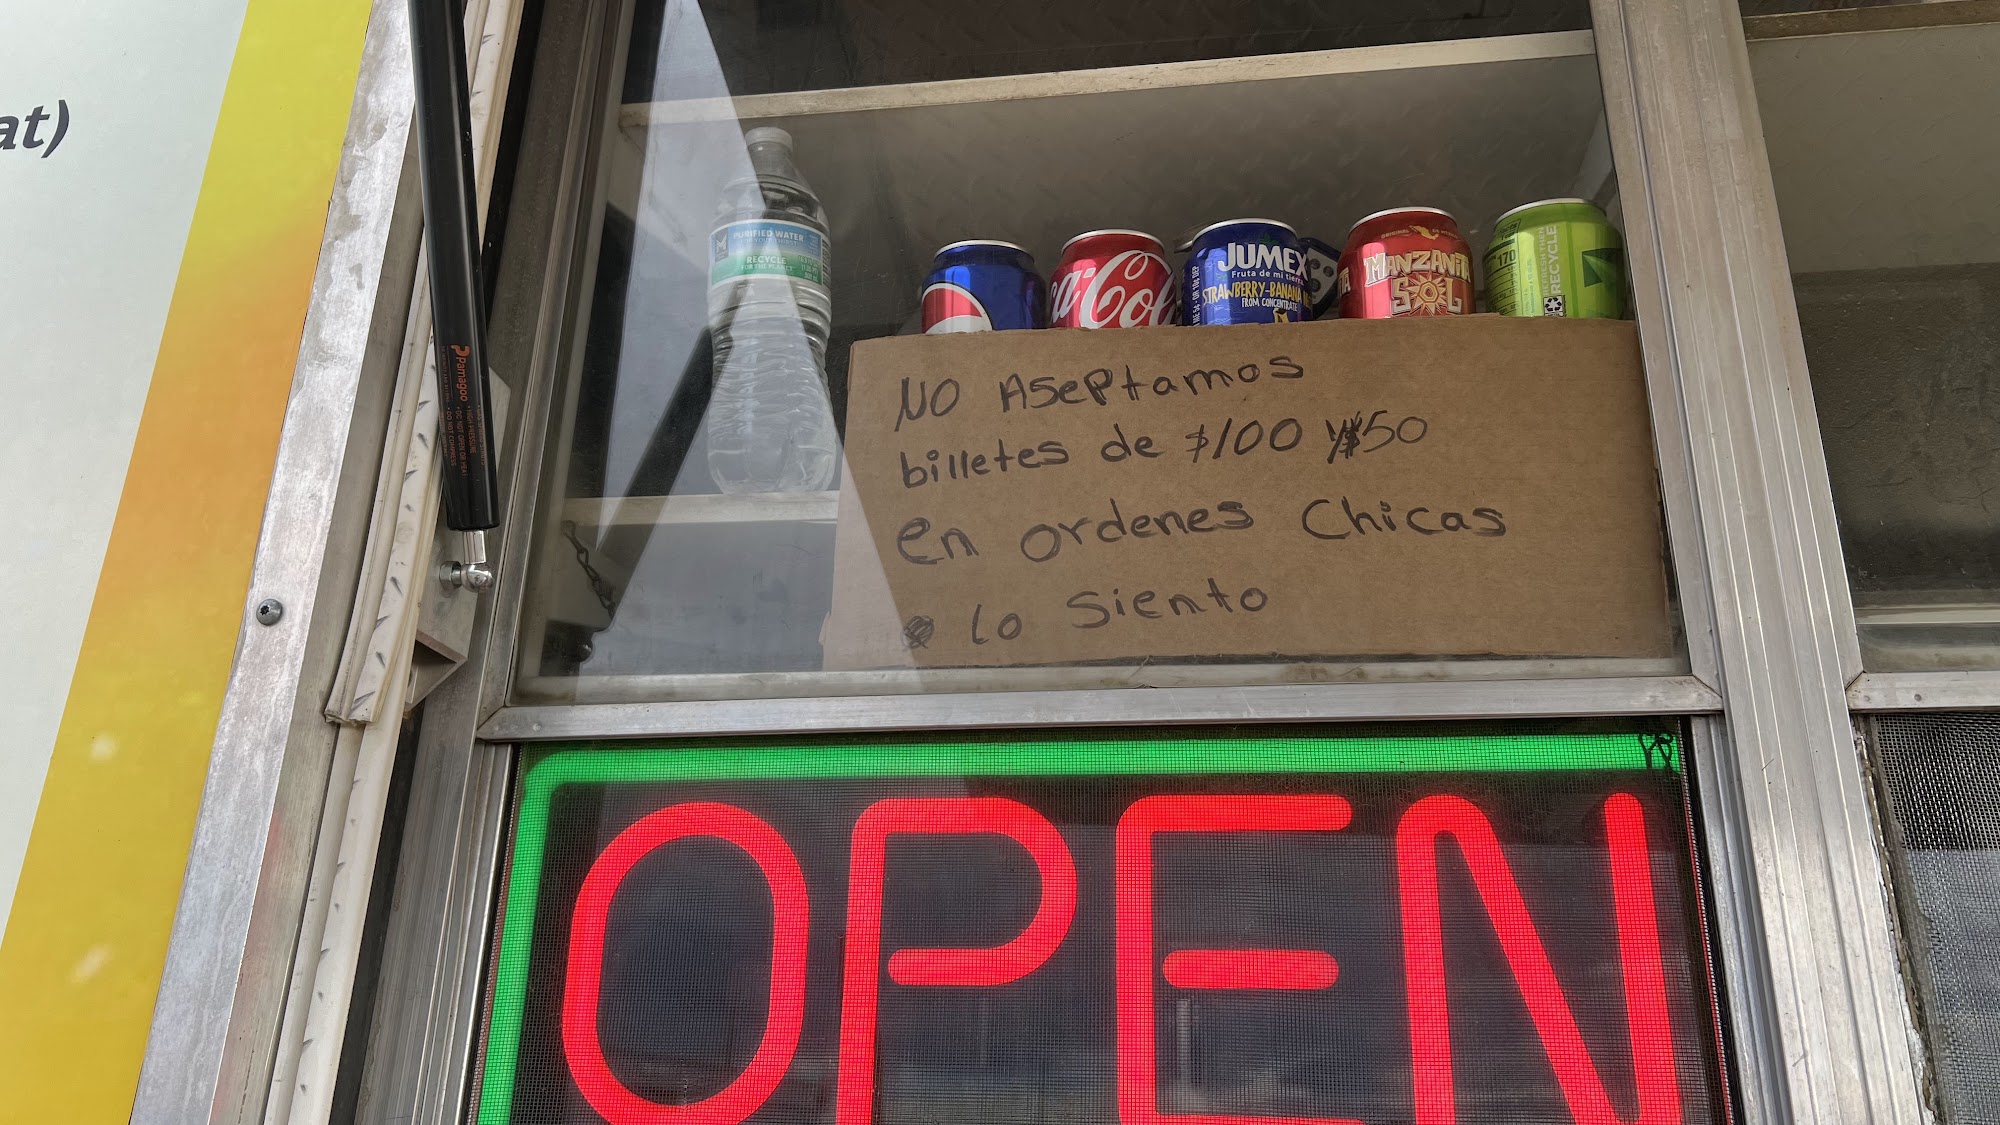 at)
PURIFIED WATER
RECYCLE
FOR THE PLANET
Coca-Cola
JUMEX
Fruta de mi tierra
STRAWBERRY-BANANA
FROM CONCENTRATE
MANZANITA
SOL
170
RECYCLE
Pamagoo
NO Aseptamos
billetes de $100 y $50
en ordenes Chicas
lo Siento
OPEN